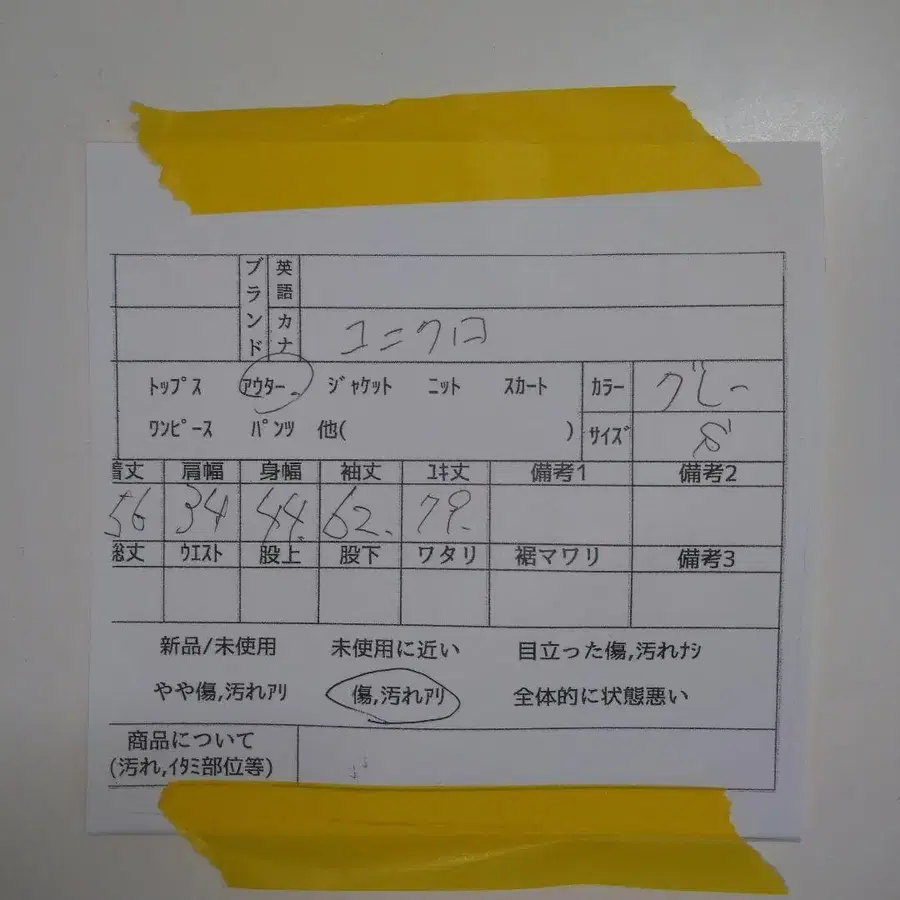 ブランド 英語
カナ ユニクロ
トップス アウター ジャケット ニット スカート カラー グレー
ワンピース パンツ 他( ) サイズ S
着丈 肩幅 身幅 袖丈 ユキ丈 備考1 備考2
56 34 44. 62. 79.
総丈 ウエスト 股上 股下 ワタリ 裾マワリ 備考3
新品/未使用 未使用に近い 目立った傷,汚れナシ
やや傷,汚れアリ 傷,汚れアリ 全体的に状態悪い
商品について
(汚れ,イタミ部位等)